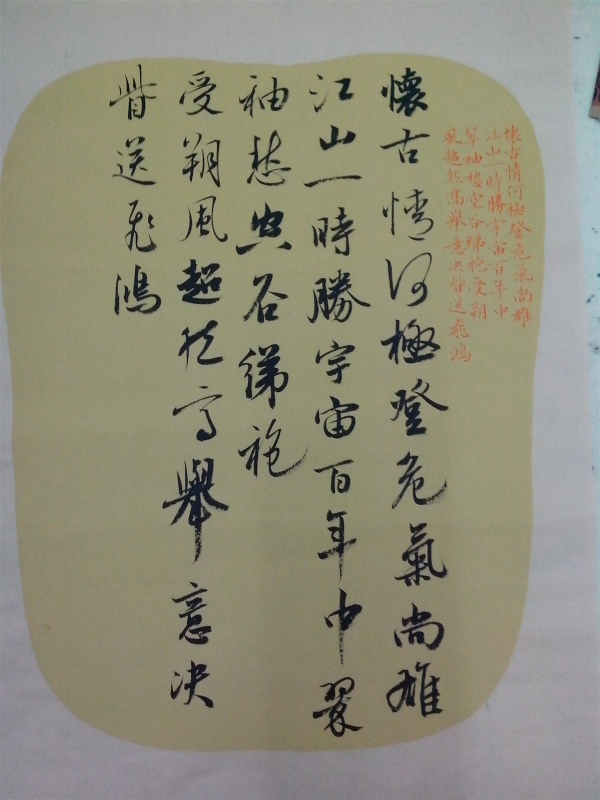 懷古情何極登危氣尚雄
江山一時勝宇宙百年中
翠袖愁空谷綈袍受朔
風超然高舉意決眥送飛鴻
懷古情何極登危氣尚雄
江山一時勝宇宙百年中翠
袖愁空谷綈袍
受朔風超然高舉意決
眥送飛鴻